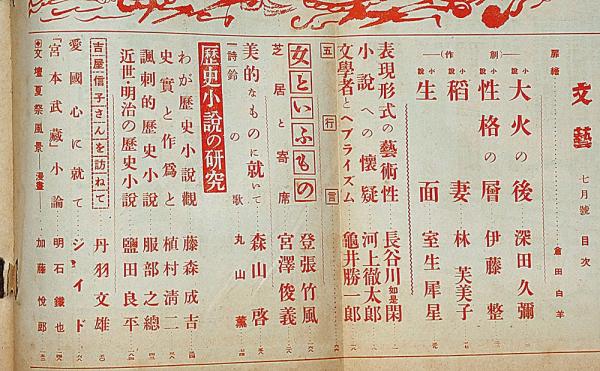 文藝 七月號 目次
扉繪 倉田白羊
創作
小說 大火の後 深田久彌
小說 性格の層 伊藤整
小說 稻妻 林芙美子
小說 生面 室生犀星
表現形式の藝術性 長谷川如是閑
小說への懷疑 河上徹太郎
文學者とヘブライズム 龜井勝一郎
五行言
女といふもの 登張竹風
芝居と寄席 宮澤俊義
美的なものに就いて 森山啓
詩 鈴の歌 丸山薰
歷史小說の研究
わが歷史小說觀 藤森成吉
史實と作爲と 植村清二
諷刺的歷史小說 服部之總
近世・明治の歷史小說 鹽田良平
吉屋信子さんを訪ねて 丹羽文雄
愛國心に就て ジイド
「宮本武藏」小論 明石鐵也
文壇夏祭風景—漫畫— 加藤悅郎